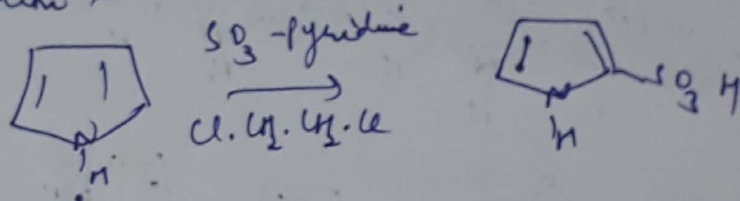 SO3 -Pyridine
Cl.CH2.CH2.Cl
N
H
N
H
SO3H